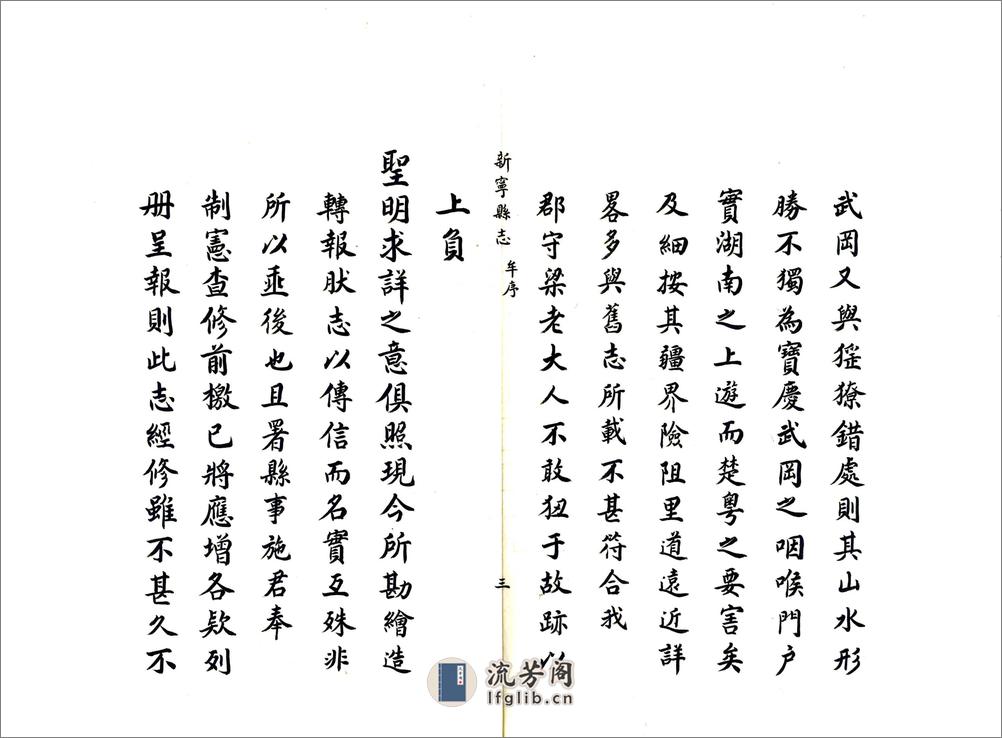 武岡又與猺獠錯處則其山水形
勝不獨為寶慶武岡之咽喉門戶
實湖南之上遊而楚粵之要害矣
及細按其疆界險阻里道遠近詳
畧多與舊志所載不甚符合我
郡守梁老大人不敢狃于故跡以
新寧縣志 牟序 三
上負
聖明求詳之意俱照現今所勘繪造
轉報朕志以傳信而名實互殊非
所以垂後也且署縣事施君奉
制憲查修前檄已將應增各欵列
册呈報則此志經修雖不甚久不
流芳阁
lfglib.cn